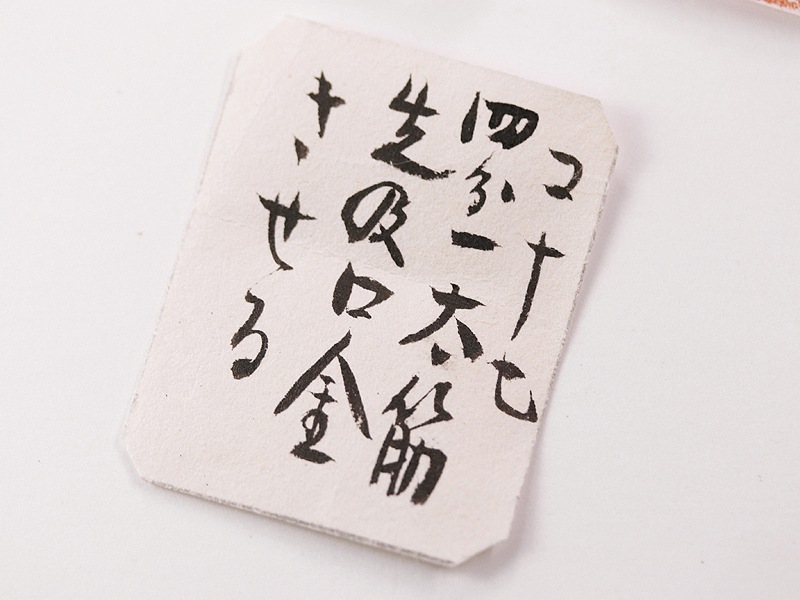 コ十七
四分一太筋
先吸口金
きせる